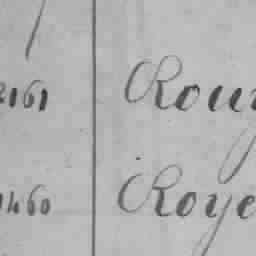 2161 Rouy
1460 Roye